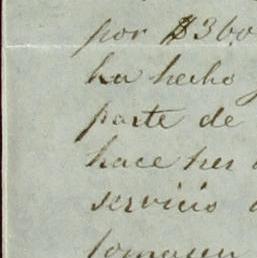 por $360
ha hecho
parte de
hace tres
servicio